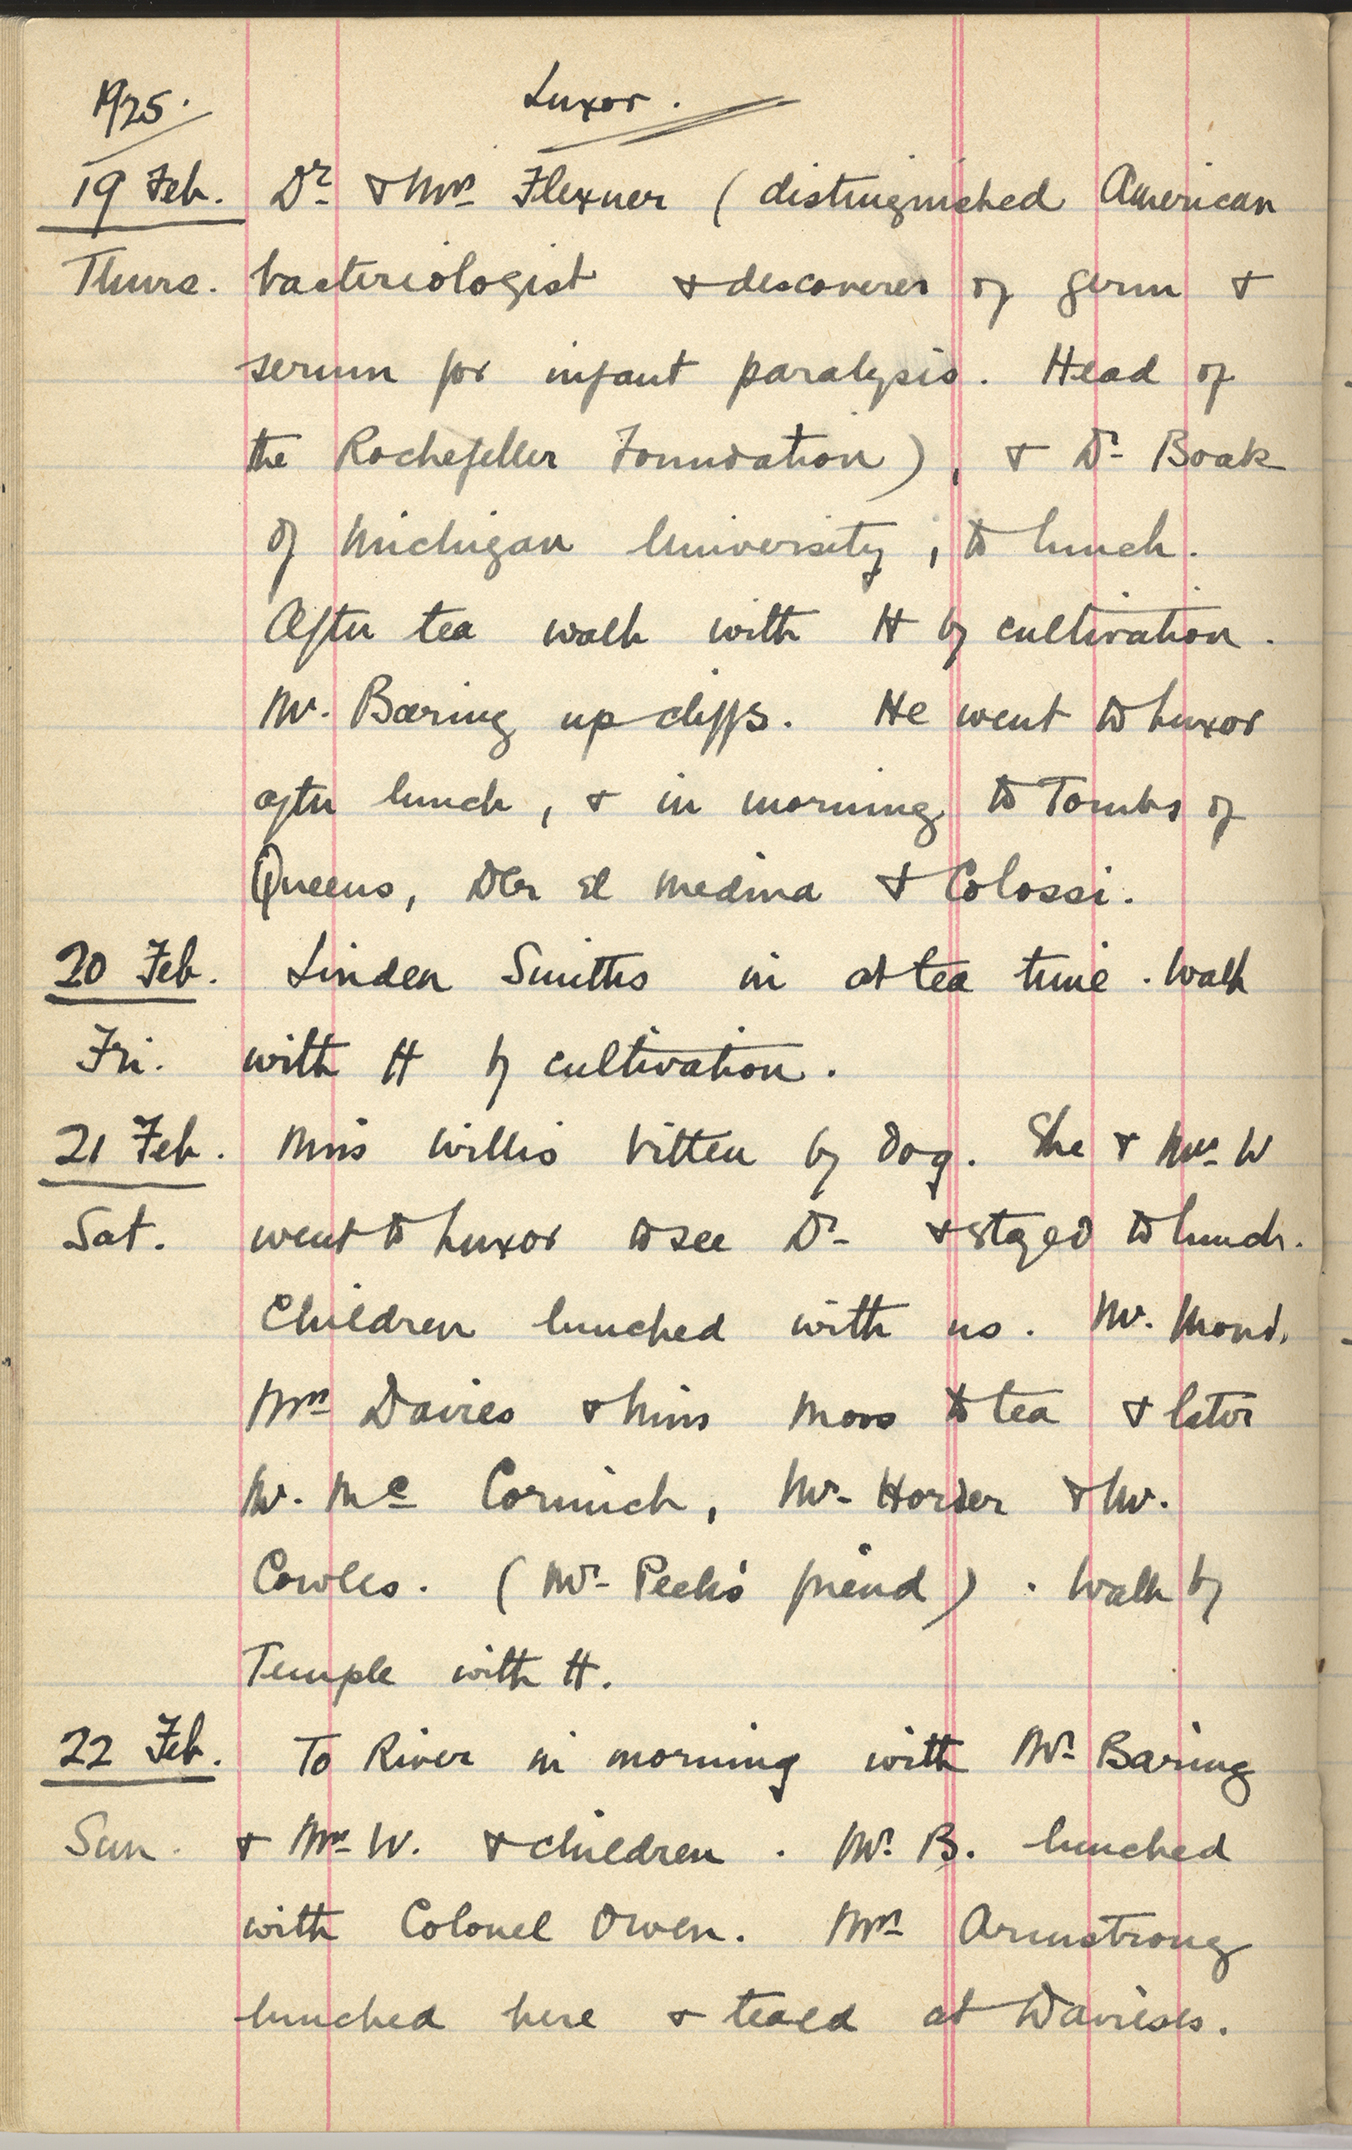 1925. Luxor.
19 Feb. Dr & Mrs Flexner (distinguished American
Thurs. bacteriologist & discoverer of germ &
serum for infant paralysis. Head of
the Rochefeller Foundation), & Dr Boak
of Michigan University, to lunch.
After tea walk with H by cultivation.
Mr. Baring up cliffs. He went to Luxor
after lunch, & in morning to Tombs of
Queens, Der el Medina & Colossi.
20 Feb. Linden Smiths in at tea time. Walk
Fri. with H by cultivation.
21 Feb. Miss Willis bitten by dog. She & Mrs W
Sat. went to Luxor to see Dr & stayed to lunch.
Children lunched with us. Mr. Mond,
Mrs Davies & Miss Moss to tea & later
Mr. Mc Cormick, Mr Horder & Mr.
Cowles. (Mr Peek's friend). Walk by
Temple with H.
22 Feb. To River in morning with Mr Baring
Sun. & Mrs W. & children. Mr B. lunched
with Colonel Owen. Mrs Armstrong
lunched here & teaed at Davieses.